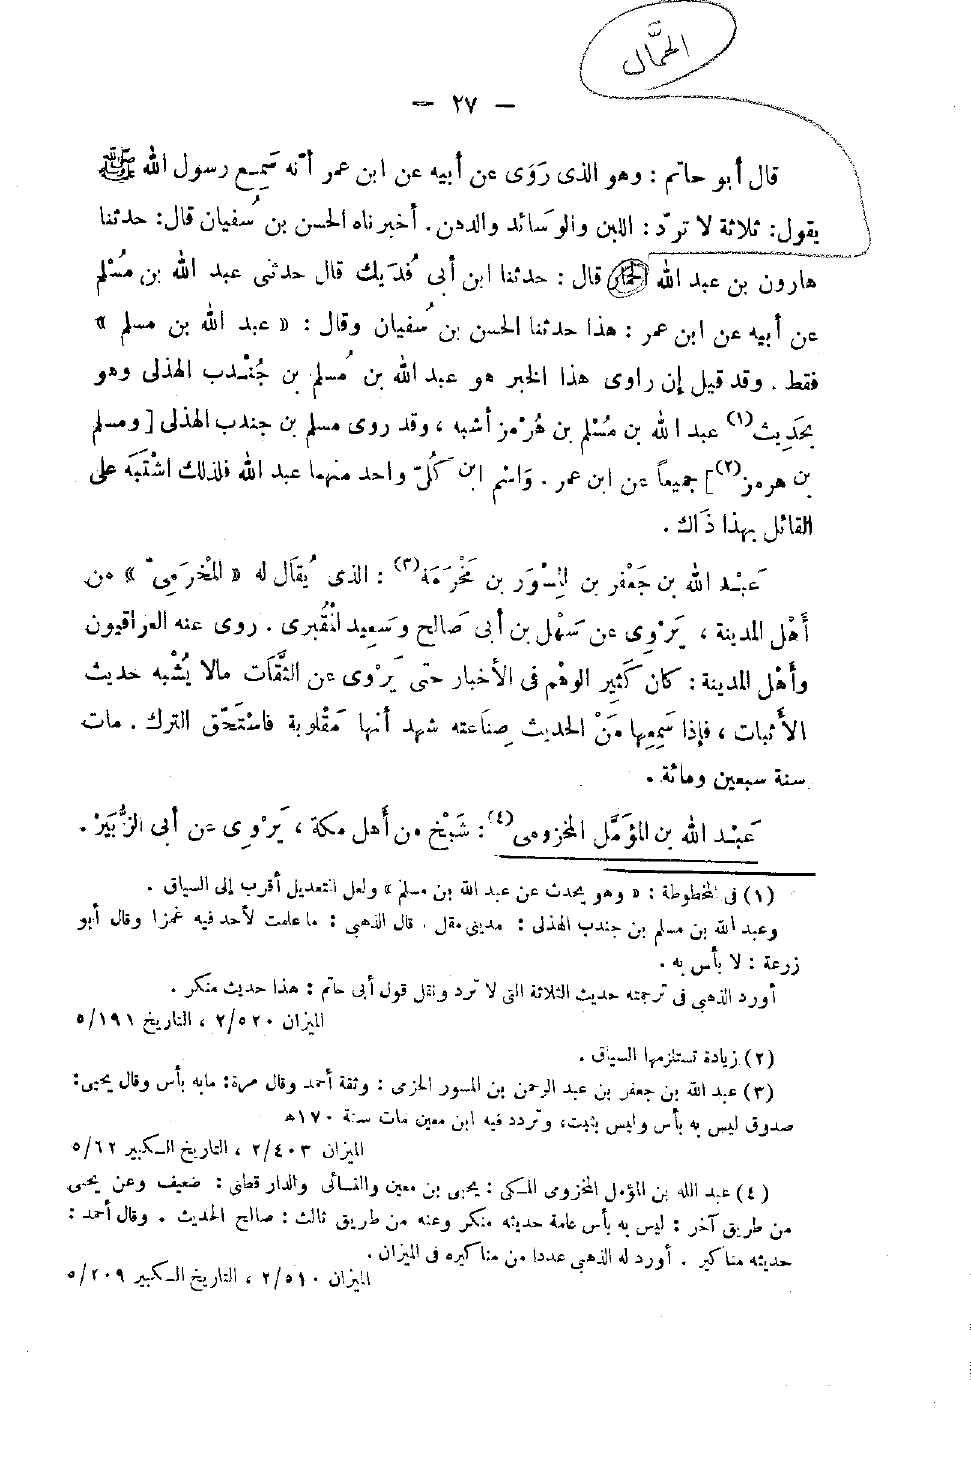 الحمَّال
— ٢٧ —
قال أبو حاتم : وهو الذى رَوَى عن أبيه عن ابن عمر أنّه سَمِع رسول الله ﷺ
يقول: ثلاثة لا تردّ : اللبن والوسَائد والدهن. أخبرناه الحسن بن سُفيان قال: حدثنا
هارون بن عبد الله قال : حدثنا ابن أبى فُدَيك قال حدثنى عبد الله بن مُسْلم
عن أبيه عن ابن عمر : هذا حدثنا الحسن بن سُفيان وقال : « عبد الله بن مسلم »
فقط . وقد قيل إن راوى هذا الخبر هو عبد الله بن مُسلم بن جُنْدب الهذلى وهو
بحَدِيث(١) عبد الله بن مُسْلم بن هُرْمز أشبه ، وقد روى مسلم بن جندب الهذلى [ ومسلم
بن هرمز(٢)] جميعاً عن ابن عمر . وَاسْم ابن كُلّ واحد منهما عبد الله فلذلك اشْتَبَه على
القائل بهذا ذَاك .
عَبْد الله بن جَعْفر بن المِسْوَر بن مَخْرَمَة(٣) : الذى يُقَال له « المَخْرَمِىّ » من
أَهْل المدينة ، يَرْوِى عن سَهْل بن أبى صَالح وسَعِيد المْقُبرى . روى عنه العراقيون
وأَهْل المدينة : كان كَثِير الوهْم فى الأخبار حتى يَرْوِى عن الثِّقَات مالا يُشْبه حديث
الأَثبات ، فإذا سَمِعها مَنْ الحديث صِنَاعته شهد أنها مَقْلوبة فاسْتَحَق الترك . مات
سنة سبعين ومائة .
عَبْد الله بن المؤَمَّل المخزومى(٤) : شَيْخ من أَهل مكة ، يَرْوِى عن أبى الزُّبَيْر .
(١) فى المخطوطة : « وهو يحدث عن عبد الله بن مسلم » ولعل التعديل أقرب إلى السياق .
وعبد الله بن مسلم بن جندب الهذلى : مدينى مقل . قال الذهبى : ما علمت لأحد فيه غمزا وقال أبو
زرعة : لا بأس به .
أورد الذهبى فى ترجمته حديث الثلاثة التى لا ترد ونقل قول أبى حاتم : هذا حديث منكر .
الميزان ٢/٥٢٠ ، التاريخ ٥/١٩١
(٢) زيادة تستلزمها السياق .
(٣) عبد الله بن جعفر بن عبد الرحمن بن المسور الخزمى : وثقة أحمد وقال مرة: مابه بأس وقال يحيى:
صدوق ليس به بأس وليس بثبت، وتردد فيه ابن معين مات سنة ١٧٠هـ
الميزان ٢/٤٠٣ ، التاريخ الكبير ٥/٦٢
(٤) عبد الله بن المؤمل المخزومى المكى : يحيى بن معين والنسائى والدار قطنى : ضعيف وعن يحيى
من طريق آخر : ليس به بأس عامة حديثه منكر وعنه من طريق ثالث : صالح الحديث . وقال أحمد :
حديثه مناكير . أورد له الذهبى عددا من مناكيره فى الميزان .
الميزان ٢/٥١٠ ، التاريخ الكبير ٥/٢٠٩